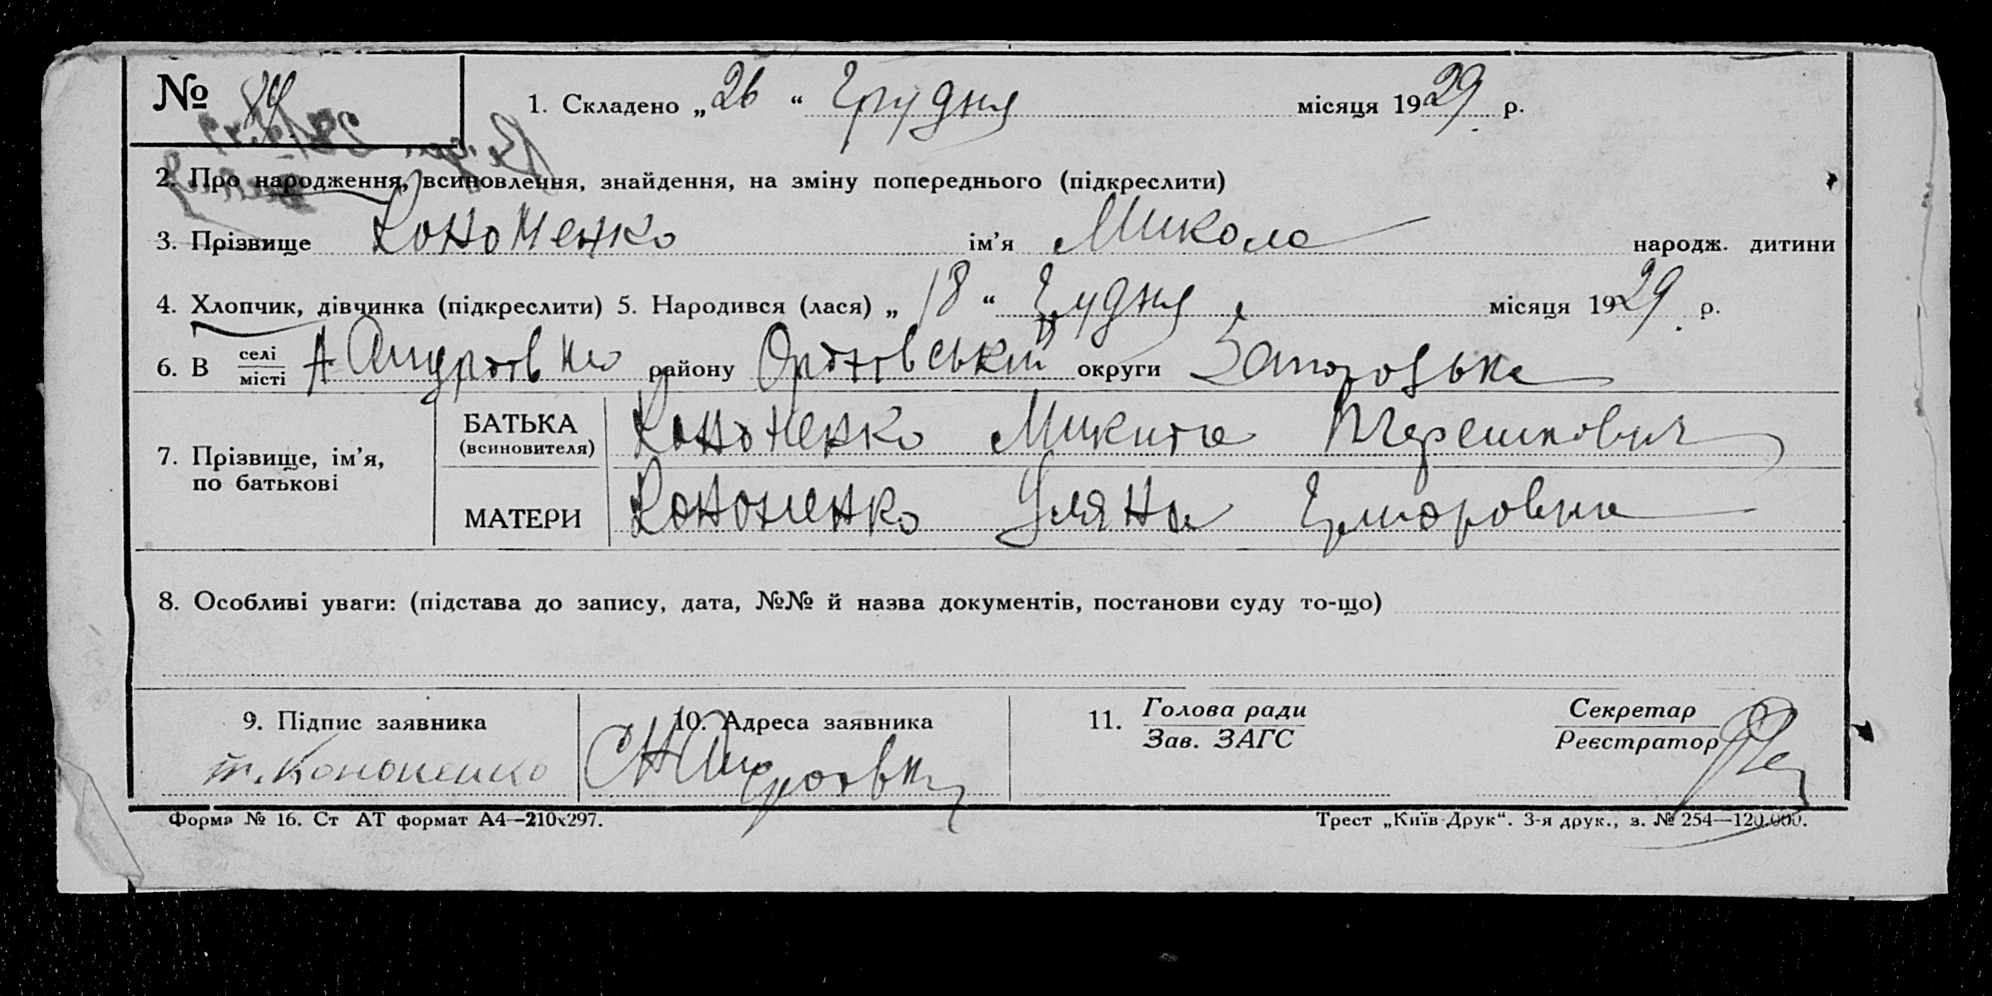 № 84 1. Складено „26“ Грудня місяця 1929 р.
2. Про народження, всиновлення, знайдення, на зміну попереднього (підкреслити)
3. Прізвище Кононенко ім’я Микола народж. дитини
4. Хлопчик, дівчинка (підкреслити) 5. Народився (лася) „18“ Грудня місяця 1929 р.
6. В селі місті району округи
7. Прізвище, ім’я, по батькові
БАТЬКА (всиновителя) Кононенко Микита
МАТЕРИ Кононенко Уляна
8. Особливі уваги: (підстава до запису, дата, №№ й назва документів, постанови суду то-що)
9. Підпис заявника 10. Адреса заявника 11. Голова ради Зав. ЗАГС Секретар Реєстратор
Кононенко
Форма № 16. Ст АТ формат А4—210х297. Трест „Київ-Друк“. 3-я друк., з. № 254—120.000.